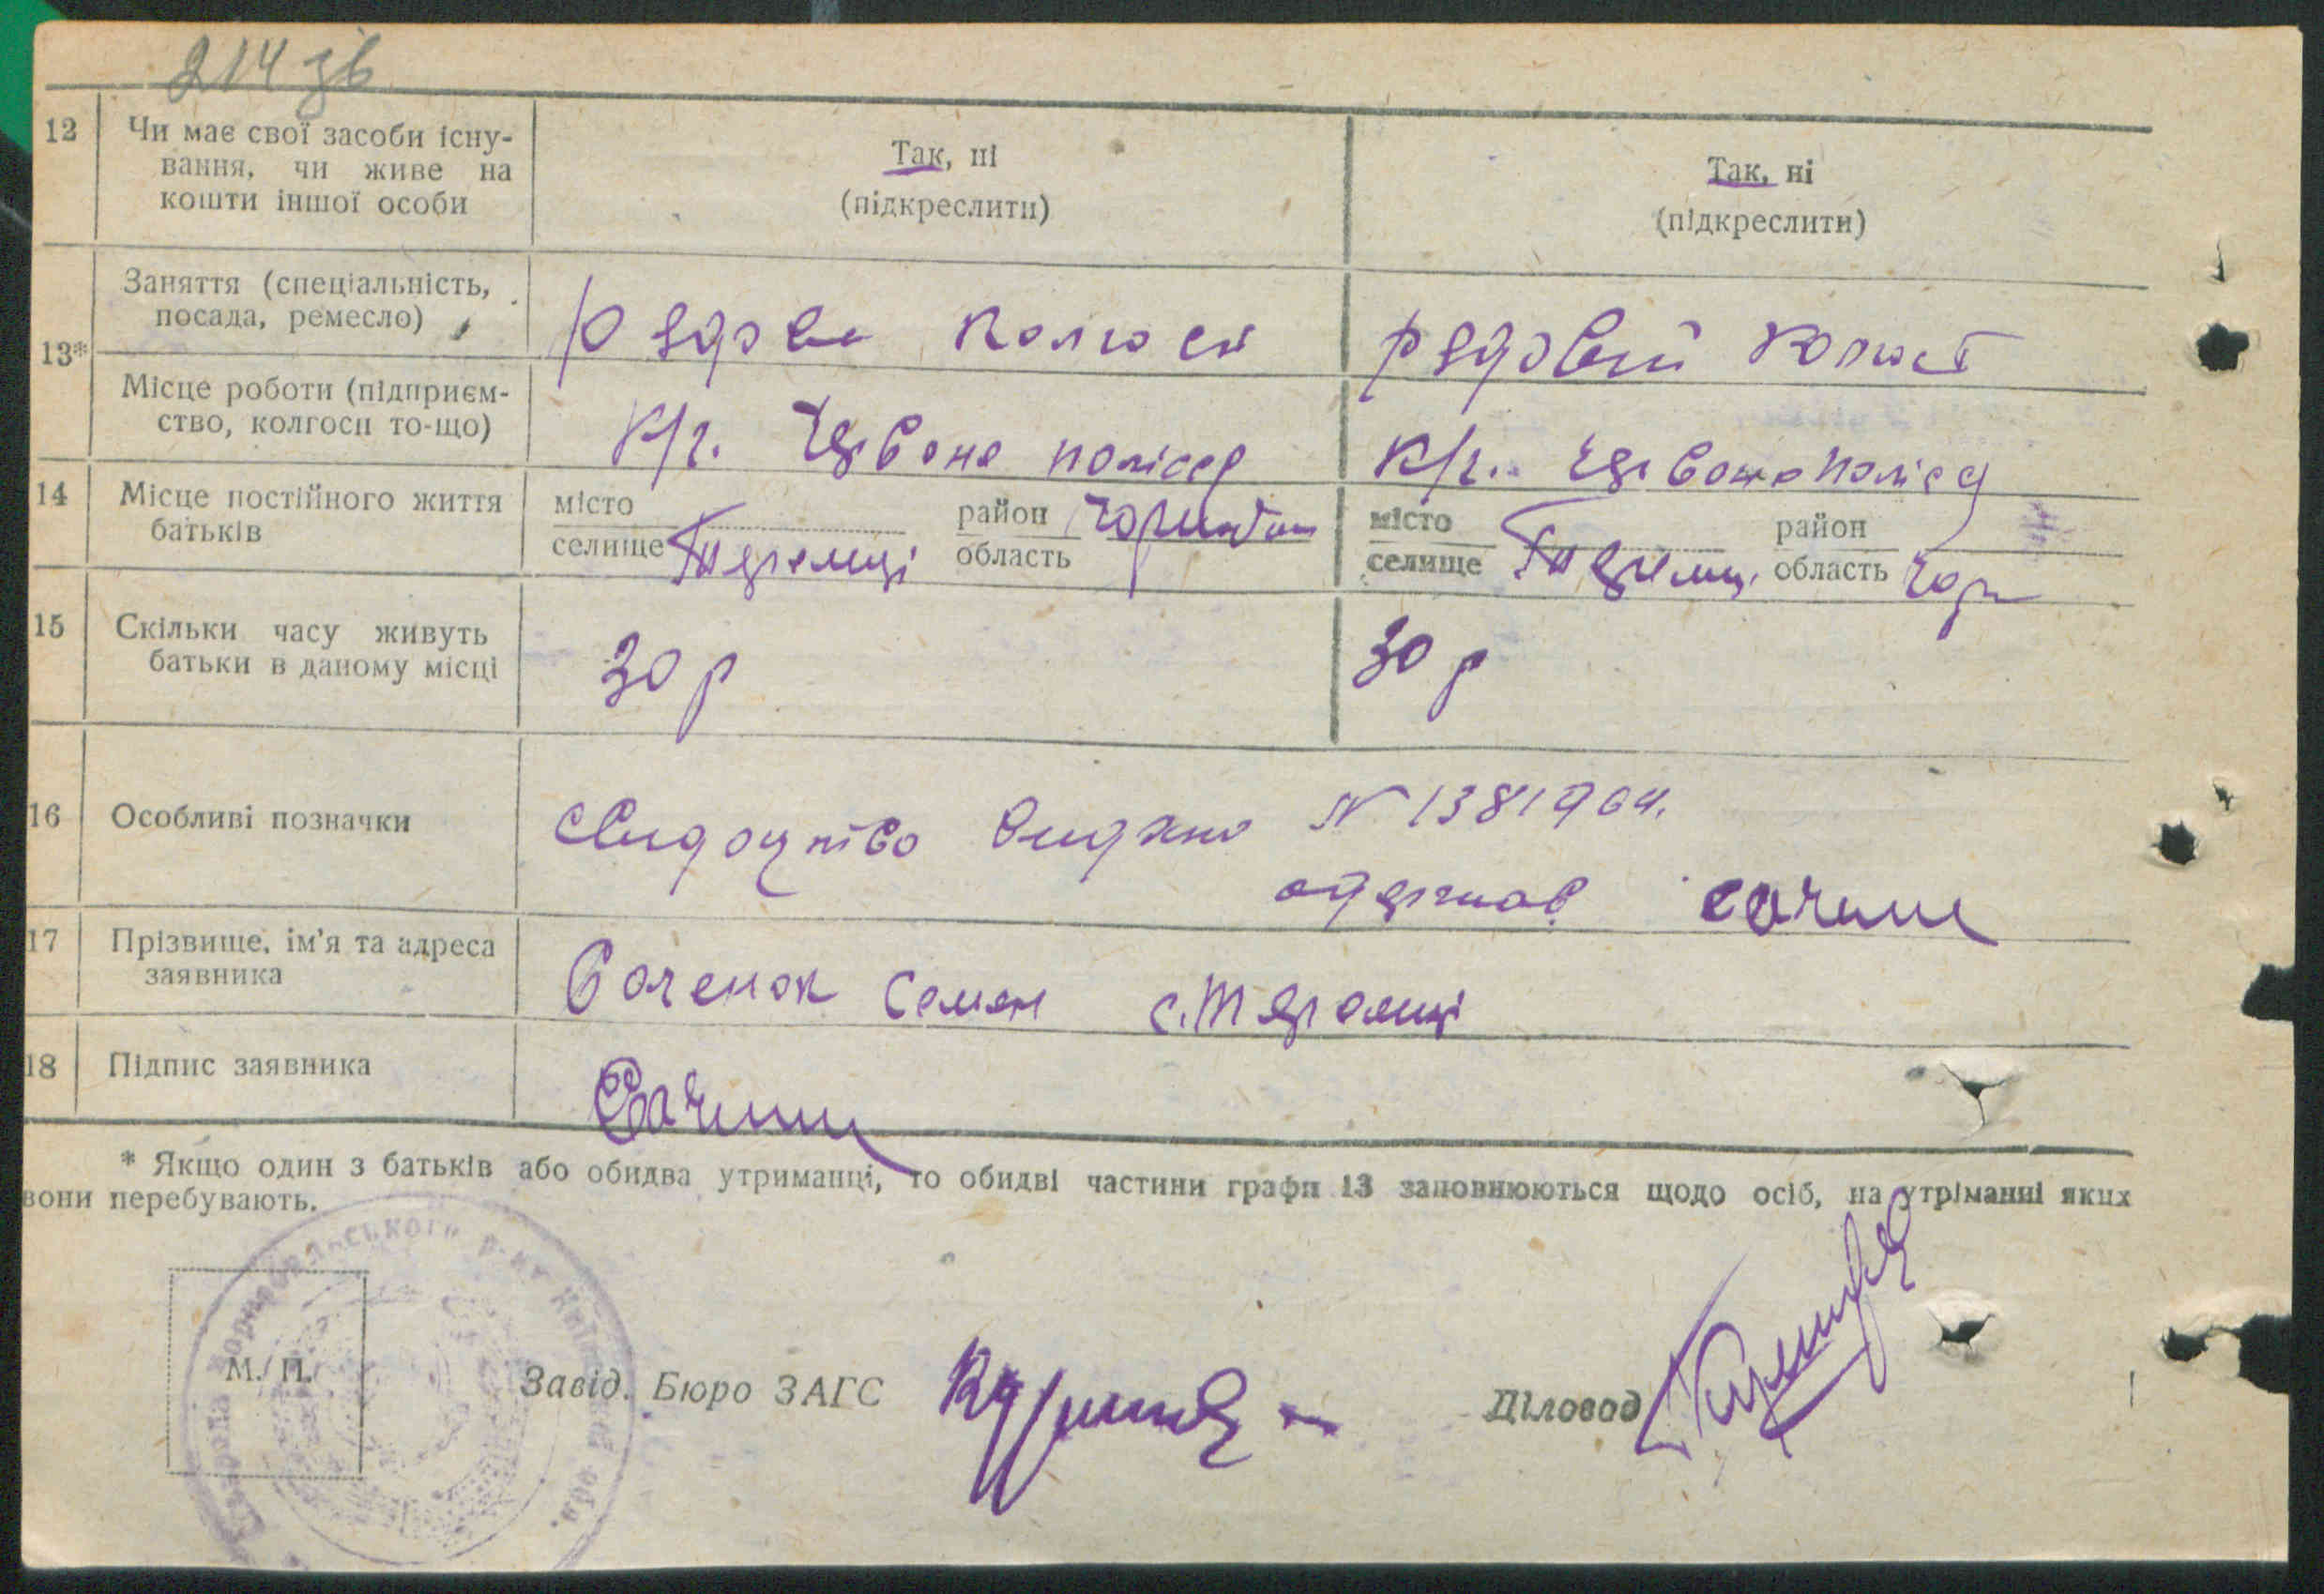 214 зв
12 Чи має свої засоби існу-
вання, чи живе на
кошти іншої особи
Так, ні
(підкреслити)
Так, ні
(підкреслити)
13*
Заняття (спеціальність,
посада, ремесло)
рядова колгосп
рядовий колгост
Місце роботи (підприєм-
ство, колгосп то-що)
к/г. Червоне полісся
к/г. Червоне Полісся
14 Місце постійного життя
батьків
місто
селище Теремці
район
область
місто
селище Теремці
район
область Чор
15 Скільки часу живуть
батьки в даному місці
30 р
30 р
16 Особливі позначки
Свидоцтво видано N 1381964.
одержав
17 Прізвище, ім'я та адреса
заявника
Саченок Семен с. Теремці
18 Підпис заявника
* Якщо один з батьків або обидва утриманці, то обидві частини графи 13 заповнюються щодо осіб, на утріманні яких
вони перебувають.
М. П.
Завід. Бюро ЗАГС
Діловод